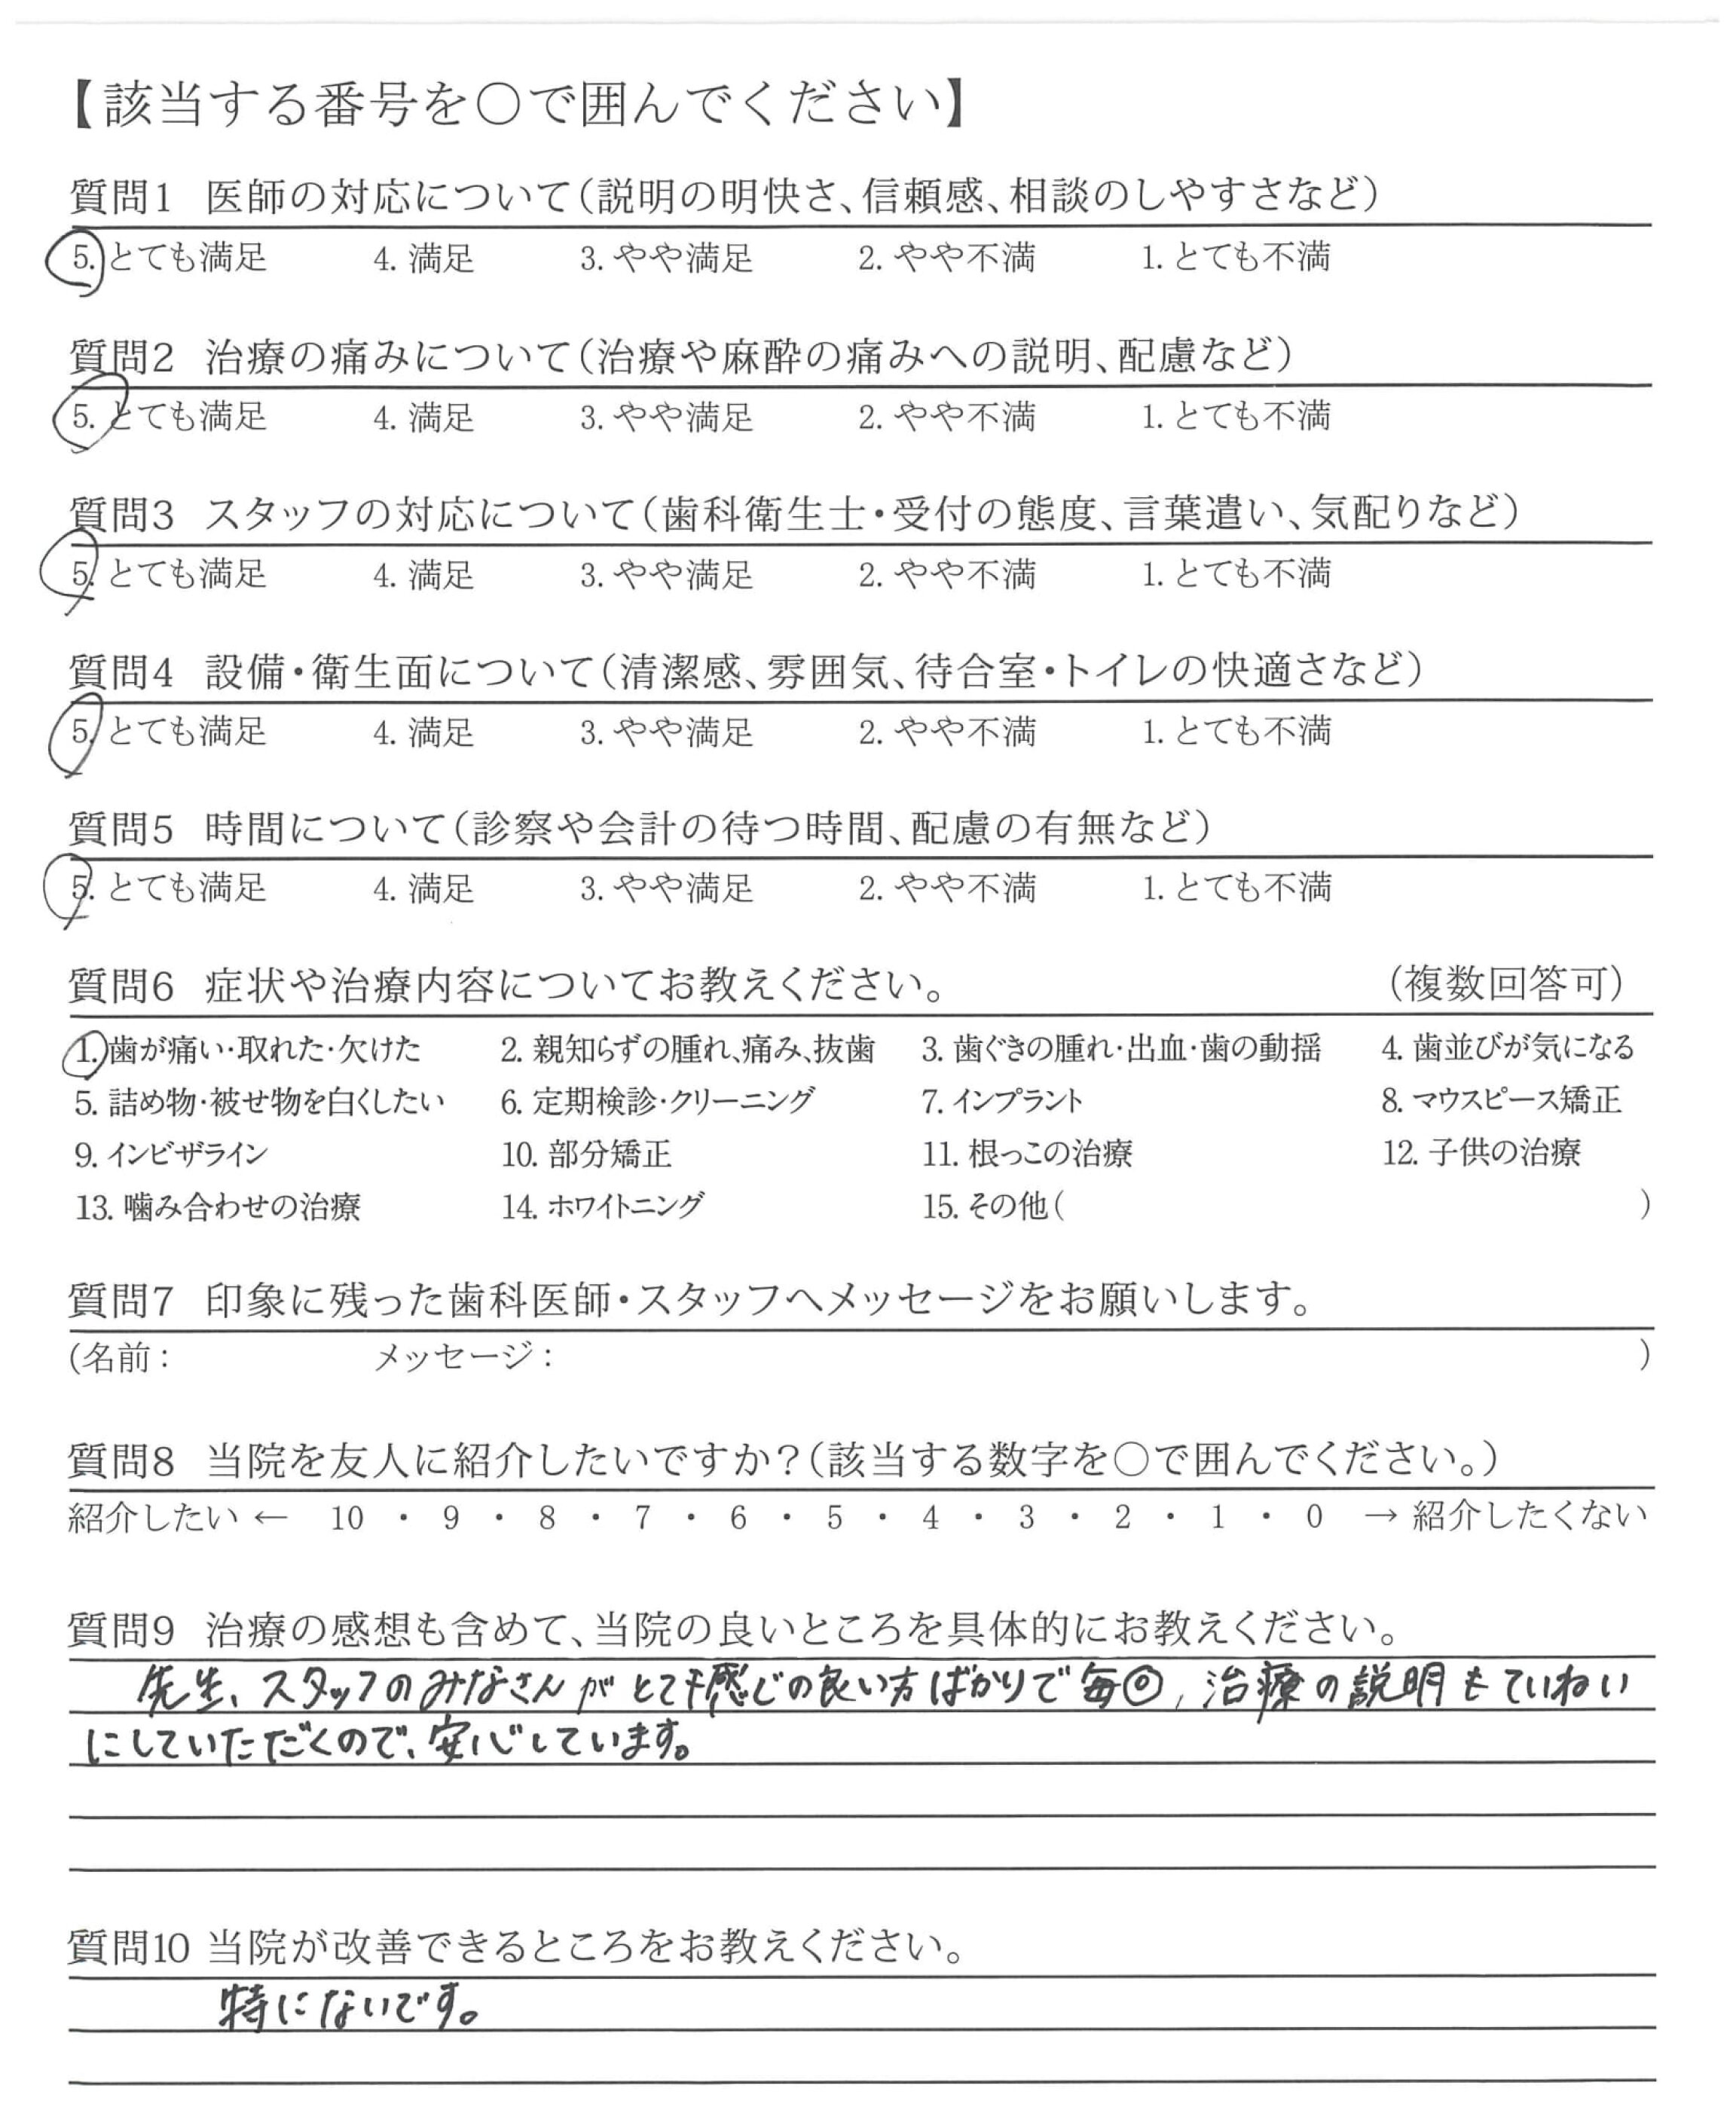 【該当する番号を○で囲んでください】
質問1 医師の対応について(説明の明快さ、信頼感、相談のしやすさなど)
5. とても満足 4. 満足 3. やや満足 2. やや不満 1. とても不満
質問2 治療の痛みについて(治療や麻酔の痛みへの説明、配慮など)
5. とても満足 4. 満足 3. やや満足 2. やや不満 1. とても不満
質問3 スタッフの対応について(歯科衛生士・受付の態度、言葉遣い、気配りなど)
5. とても満足 4. 満足 3. やや満足 2. やや不満 1. とても不満
質問4 設備・衛生面について(清潔感、雰囲気、待合室・トイレの快適さなど)
5. とても満足 4. 満足 3. やや満足 2. やや不満 1. とても不満
質問5 時間について(診察や会計の待つ時間、配慮の有無など)
5. とても満足 4. 満足 3. やや満足 2. やや不満 1. とても不満
質問6 症状や治療内容についてお教えください。 (複数回答可)
1. 歯が痛い・取れた・欠けた 2. 親知らずの腫れ、痛み、抜歯 3. 歯ぐきの腫れ・出血・歯の動揺 4. 歯並びが気になる
5. 詰め物・被せ物を白くしたい 6. 定期検診・クリーニング 7. インプラント 8. マウスピース矯正
9. インビザライン 10. 部分矯正 11. 根っこの治療 12. 子供の治療
13. 噛み合わせの治療 14. ホワイトニング 15. その他( )
質問7 印象に残った歯科医師・スタッフへメッセージをお願いします。
(名前： メッセージ： )
質問8 当院を友人に紹介したいですか？(該当する数字を○で囲んでください。)
紹介したい ← 10 ・ 9 ・ 8 ・ 7 ・ 6 ・ 5 ・ 4 ・ 3 ・ 2 ・ 1 ・ 0 → 紹介したくない
質問9 治療の感想も含めて、当院の良いところを具体的にお教えください。
先生、スタッフのみなさんがとても感じの良い方ばかりで毎回、治療の説明もていねい
にしていただくので、安心しています。
質問10 当院が改善できるところをお教えください。
特にないです。